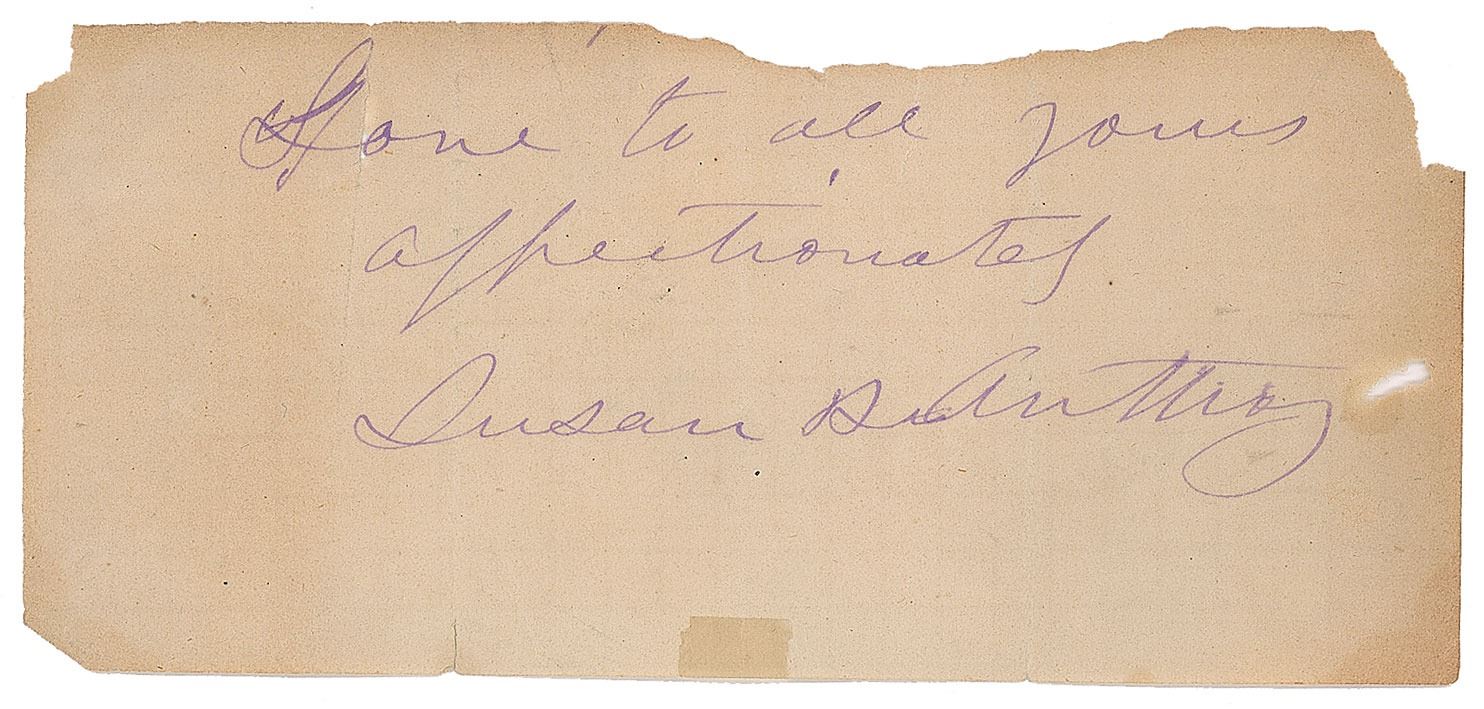 Love to all yours
affectionately
Susan B. Anthony